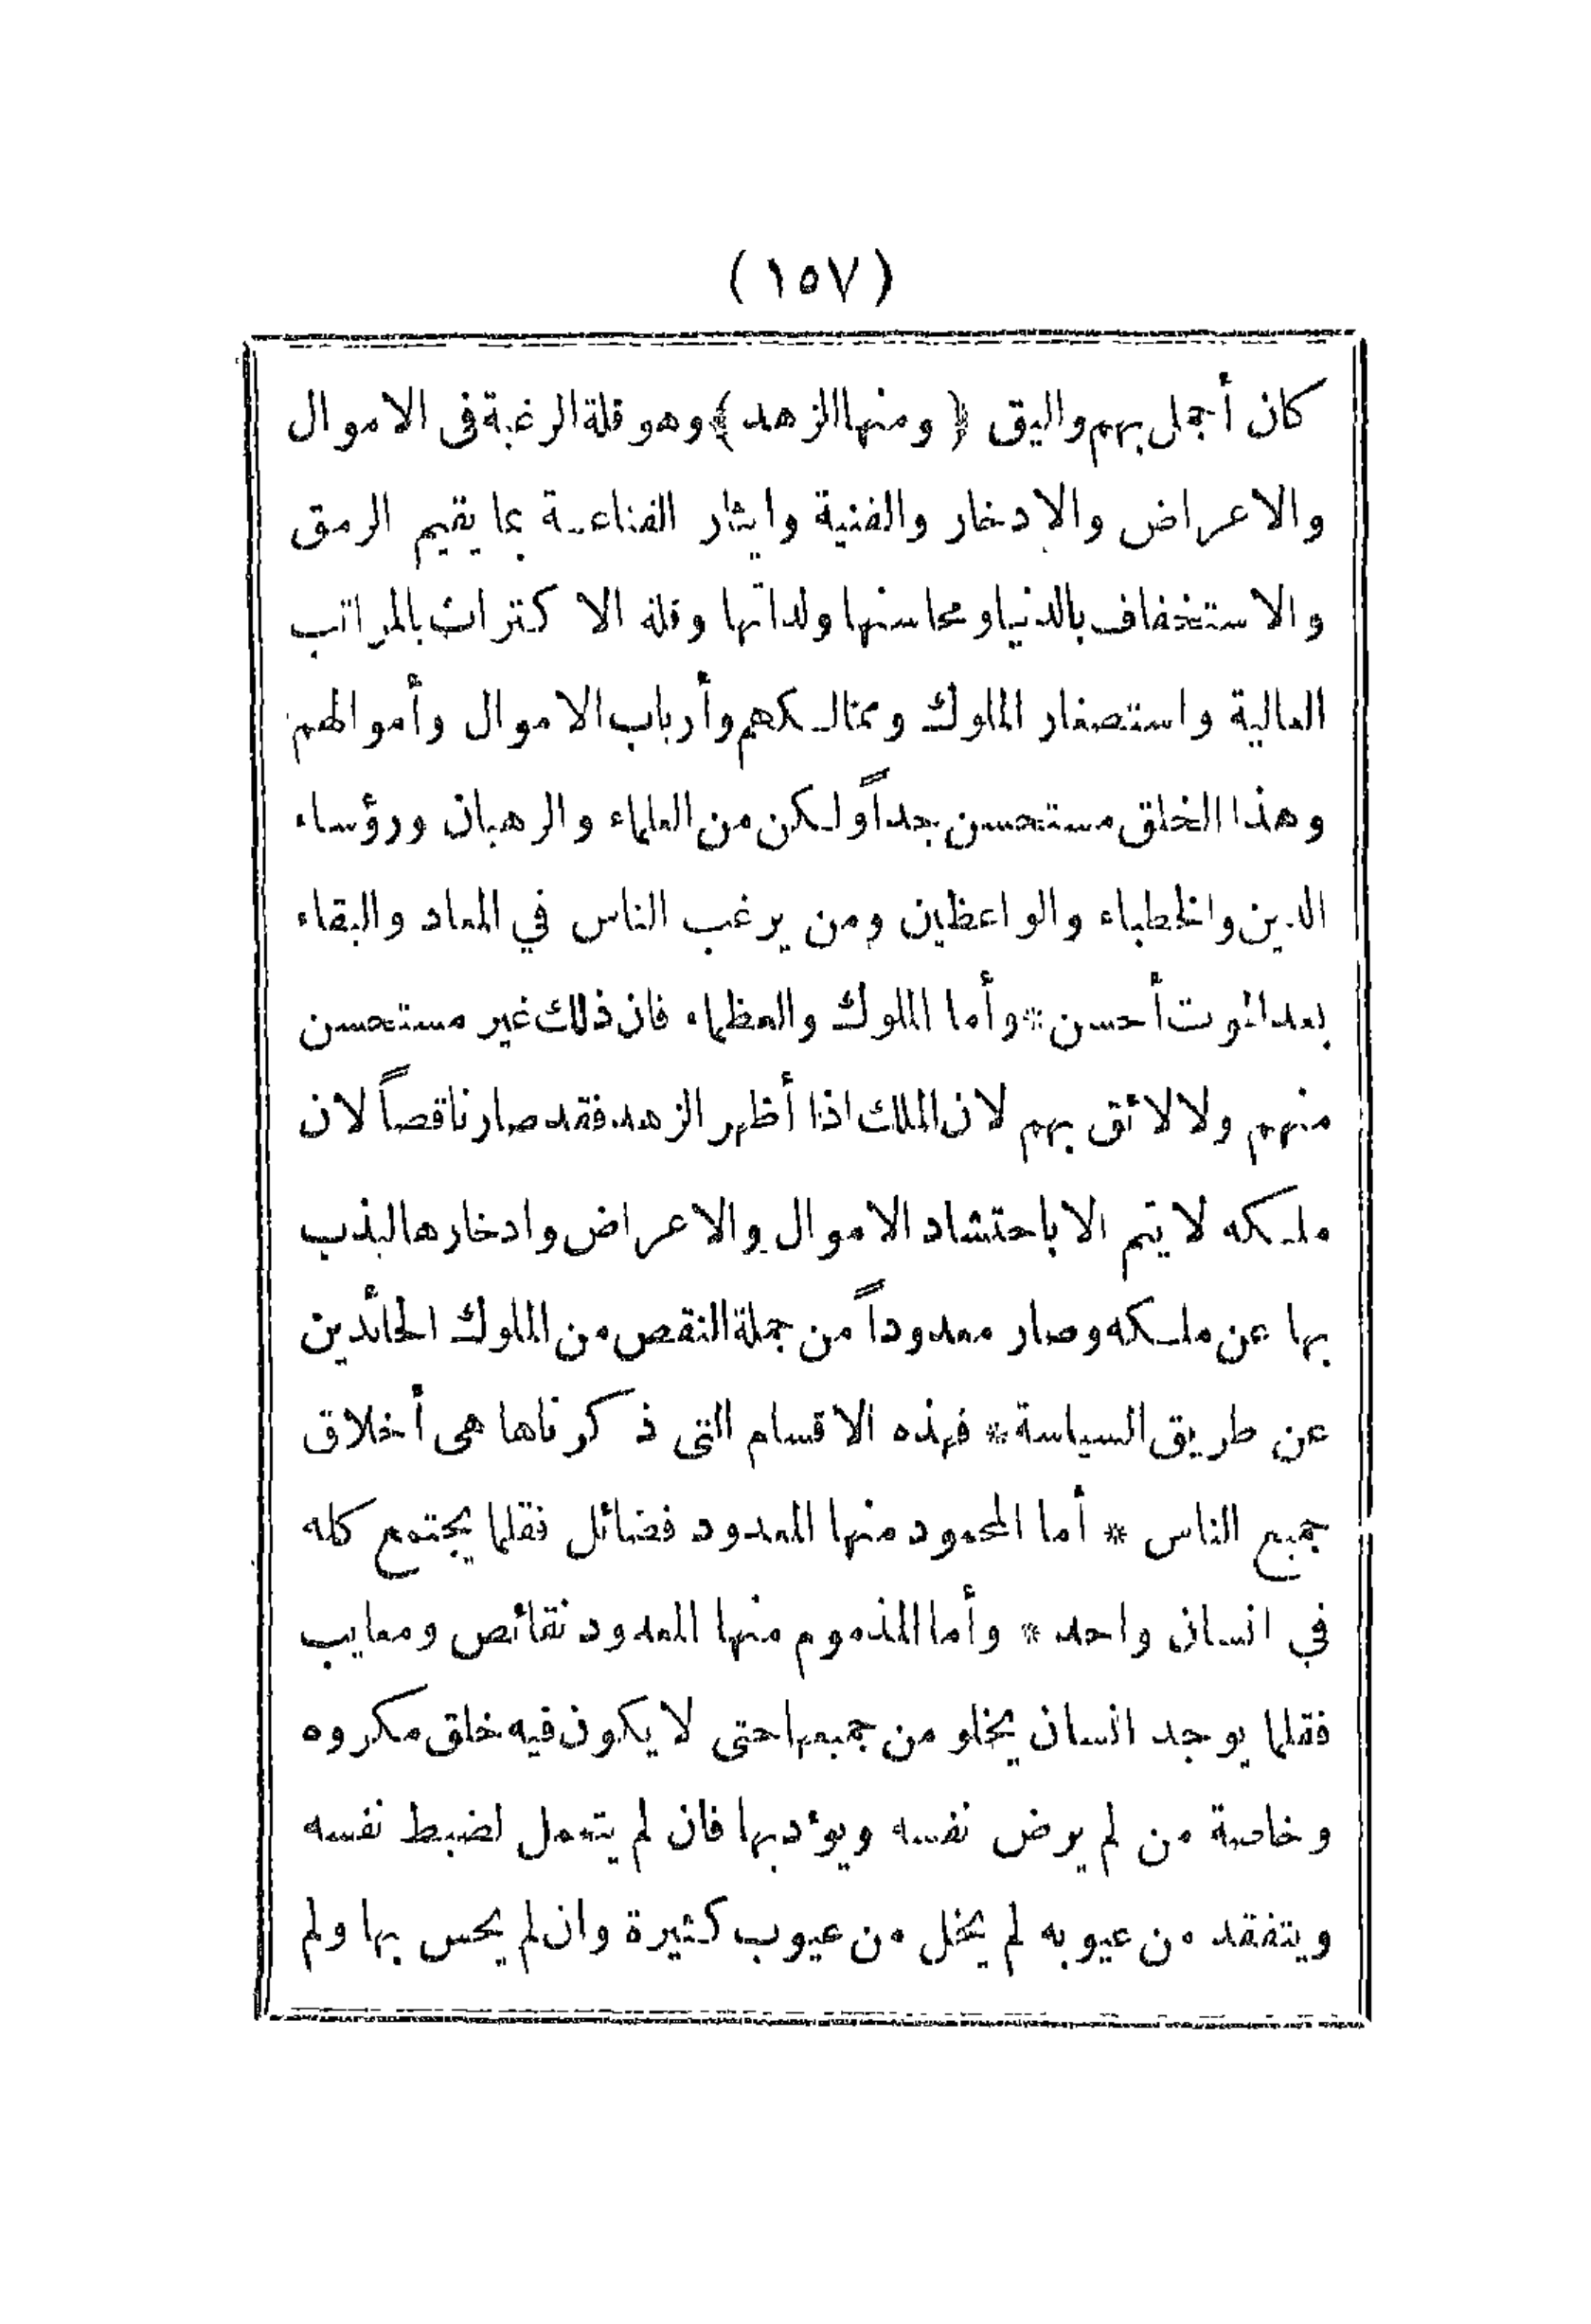 (١٥٧)
كان أجمل بهم واليق ﴿ ومنها الزهد ﴾ وهو قلة الرغبة فى الاموال
والاعراض والادخار والقنية وايثار القناعة بما يقيم الرمق
والاستخفاف بالدنيا ومحاسنها ولذاتها وقلة الاكتراث بالمراتب
العالية واستصغار الملوك وممالكهم وأرباب الاموال وأموالهم
وهذا الخلق مستحسن جداً ولكن من العلماء والرهبان ورؤساء
الدين والخطباء والواعظين ومن يرغب الناس في المعاد والبقاء
بعد الموت أحسن * وأما الملوك والعظماء فان ذلك غير مستحسن
منهم ولا لائق بهم لان الملك اذا أظهر الزهد فقد صار ناقصاً لان
ملكه لا يتم الا باحتشاد الاموال والاعراض وادخارها ليذب
بها عن ملكه وصار معدوداً من جملة النقص من الملوك الحائدين
عن طريق السياسة * فهذه الاقسام التى ذكرناها هى أخلاق
جميع الناس * أما المحمود منها المعدود فضائل فقلما يجتمع كله
في انسان واحد * وأما المذموم منها المعدود نقائص ومعايب
فقلما يوجد انسان يخلو من جميعها حتى لا يكون فيه خلق مكروه
وخاصة من لم يرض نفسه ويؤدبها فان لم يتعمل لضبط نفسه
ويتفقد من عيوبه لم يخل من عيوب كثيرة وان لم يحس بها ولم